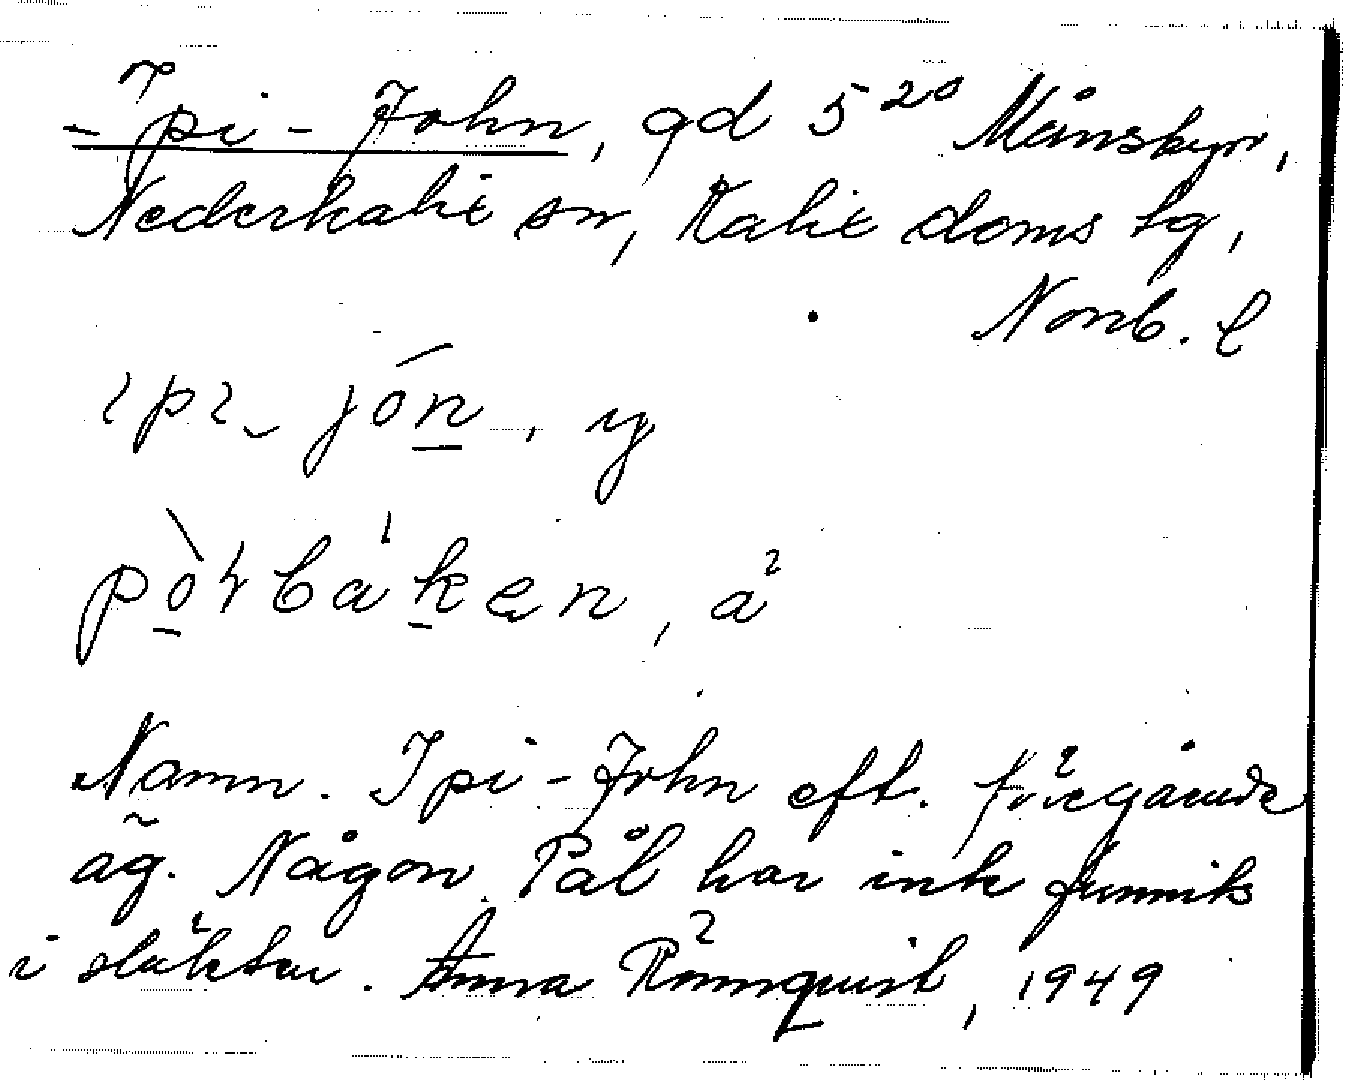 - Ipi - John, gd 5²⁰ Månsbyn,
Nederkalix sn, Kalix doms tg,
Norrb. l
ɩpɩ_ jón, y
pòɽbáken, a²
Namn. Ipi-John eft. föregående
äg. Någon Pål har inte funnits
i släkten. Anna Rönnquist, 1949